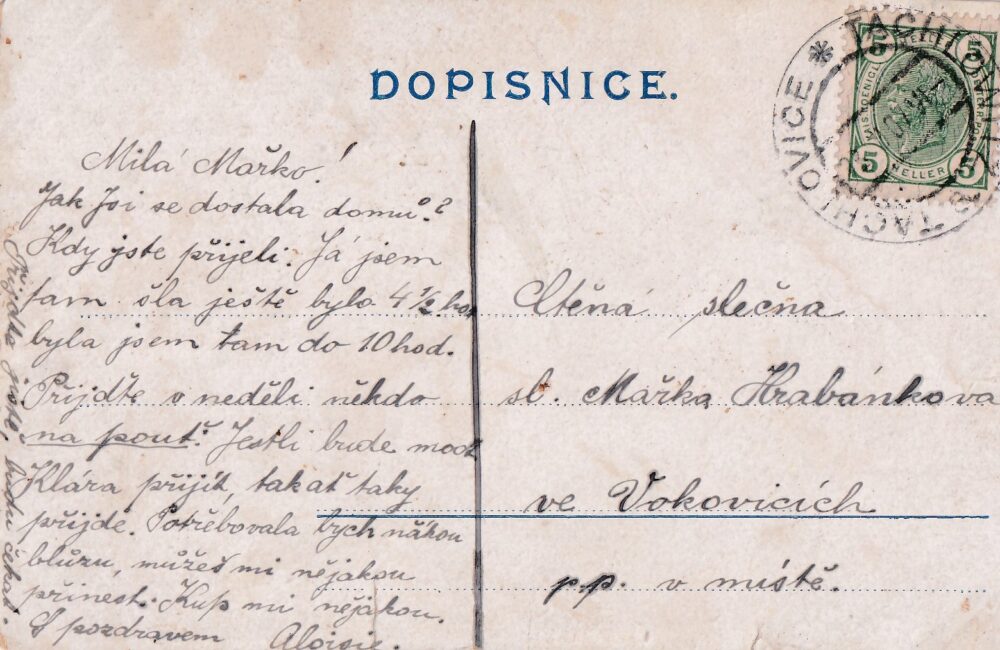 DOPISNICE.
TACHLOVICE * TACHLOVICE
5 HELLER 5
5 HELLER 5
Milá Mařko!
Jak Jsi se dostala domů?
Kdy jste přijeli. Já jsem
tam šla ještě bylo 4 1/2 hod
byla jsem tam do 10 hod.
Přijďte v neděli někdo
na pouť. Jestli bude moct
Klára přijít, takať taky
přijde. Potřebovala bych nákou
blůzu, můžeš mi nějakou
přinest. Kup mi nějakou.
S pozdravem
Aloisie.
Přijďte jistě, budu čekat.
Ctěná slečna
sl. Mařka Hrabánkova
ve Vokovicích
p.p. v místě.